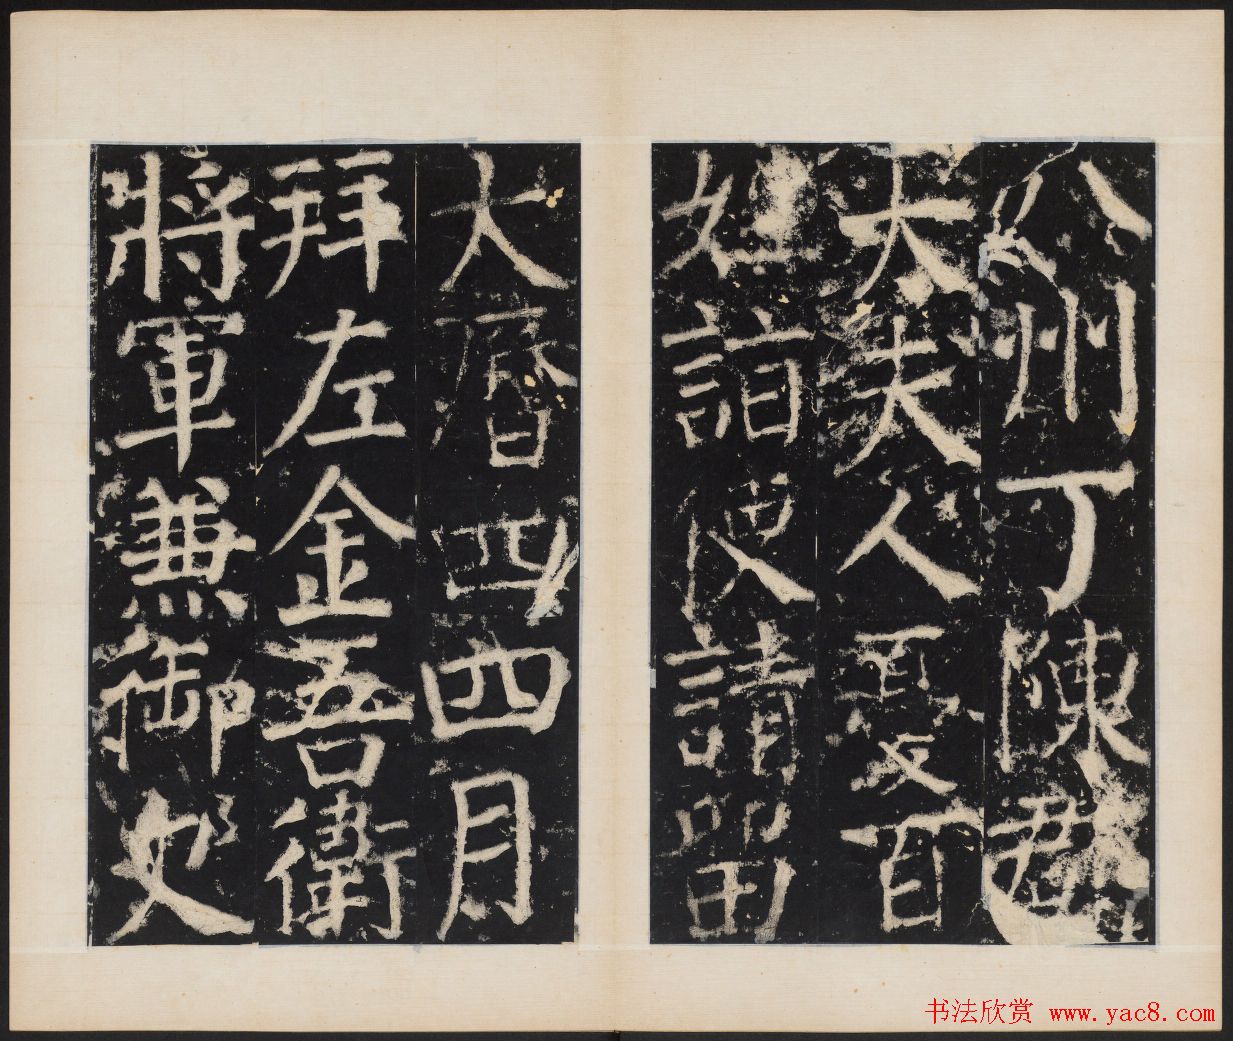 八州丁陳郡
太夫人憂百
姓詣使請留
大曆四四月
拜左金吾衛
將軍兼御史
书法欣赏 www.yac8.com